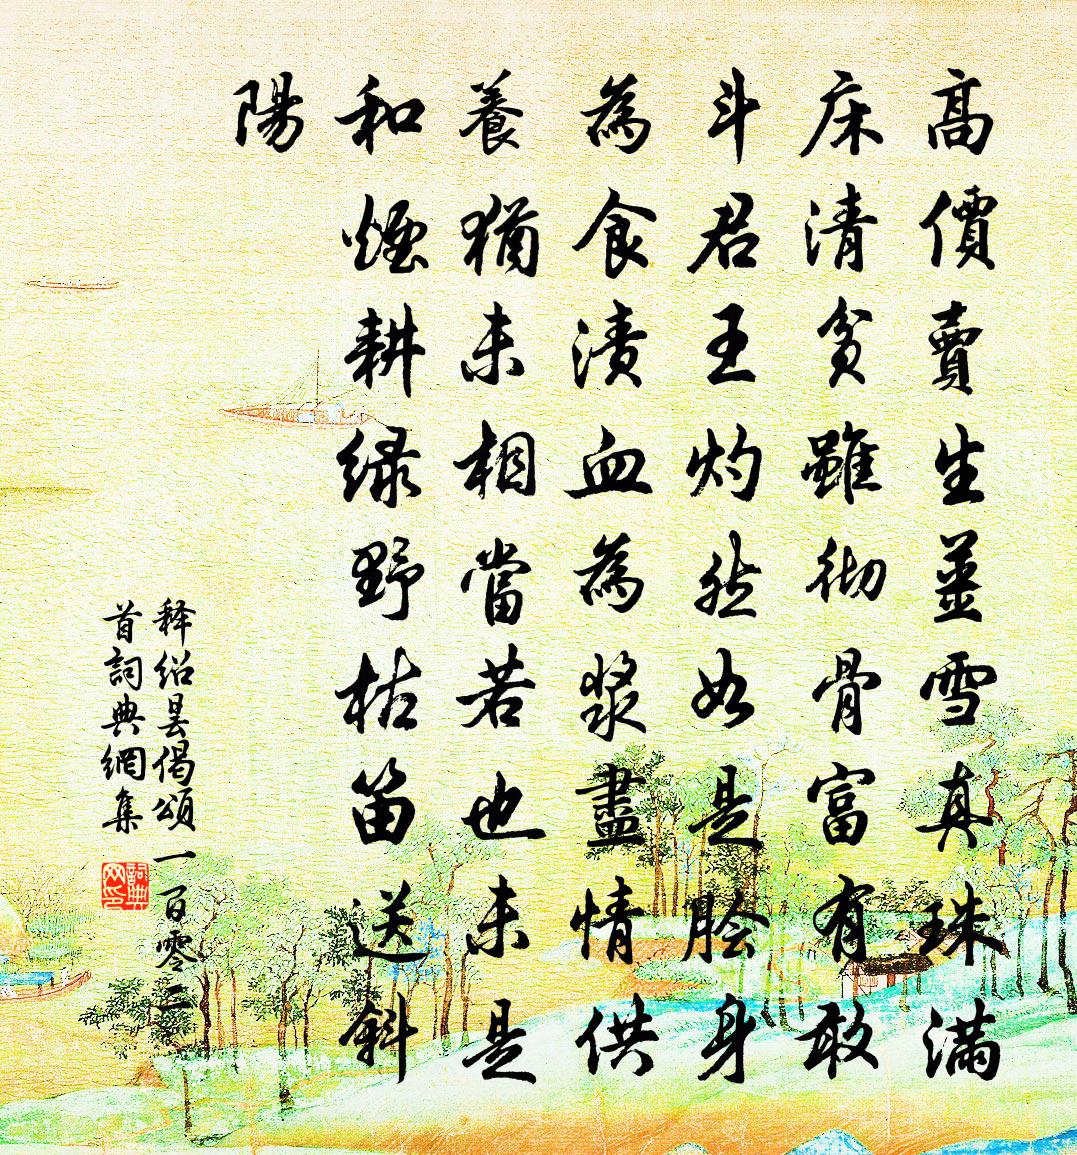 高價賣生薑雪真珠滿
床清貧雖徹骨富有敢
斗君王灼然如是脍身
為食漬血為漿盡情供
養猶未相當若也未是
和煙耕绿野枯笛送斜
陽
释绍昙偈頌一百零二
首詞典網集
詞典网印